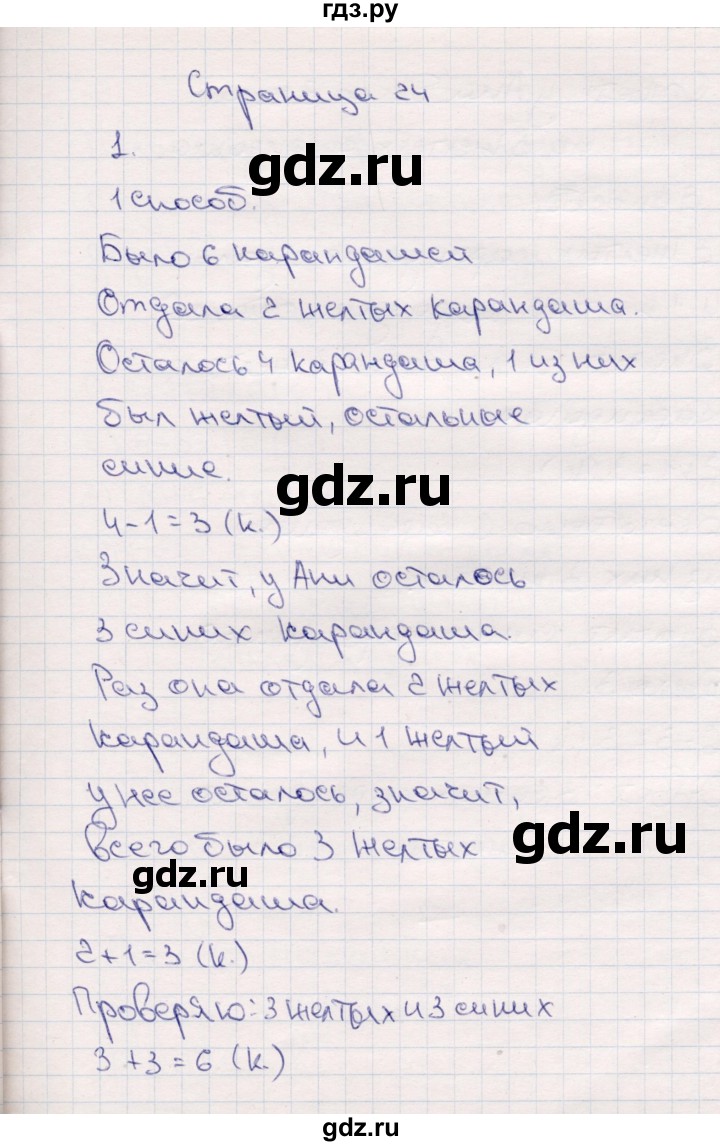 гдз.ру
Страница 24
1.
gdz.ru
1 способ.
Было 6 карандашей
Отдала 2 желтых карандаша.
Осталось 4 карандаша, 1 из них
был желтый, остальные
синие.
gdz.ru
4-1=3 (к.)
Значит, у Ани осталось
3 синих карандаша.
Раз она отдала 2 желтых
карандаша, и 1 желтый
у нее осталось, значит,
gdz.ru
всего было 3 желтых
gdz.ru
карандаша.
2+1=3 (к.)
Проверяю: 3 желтых и 3 синих
3+3=6 (к.)
gdz.ru